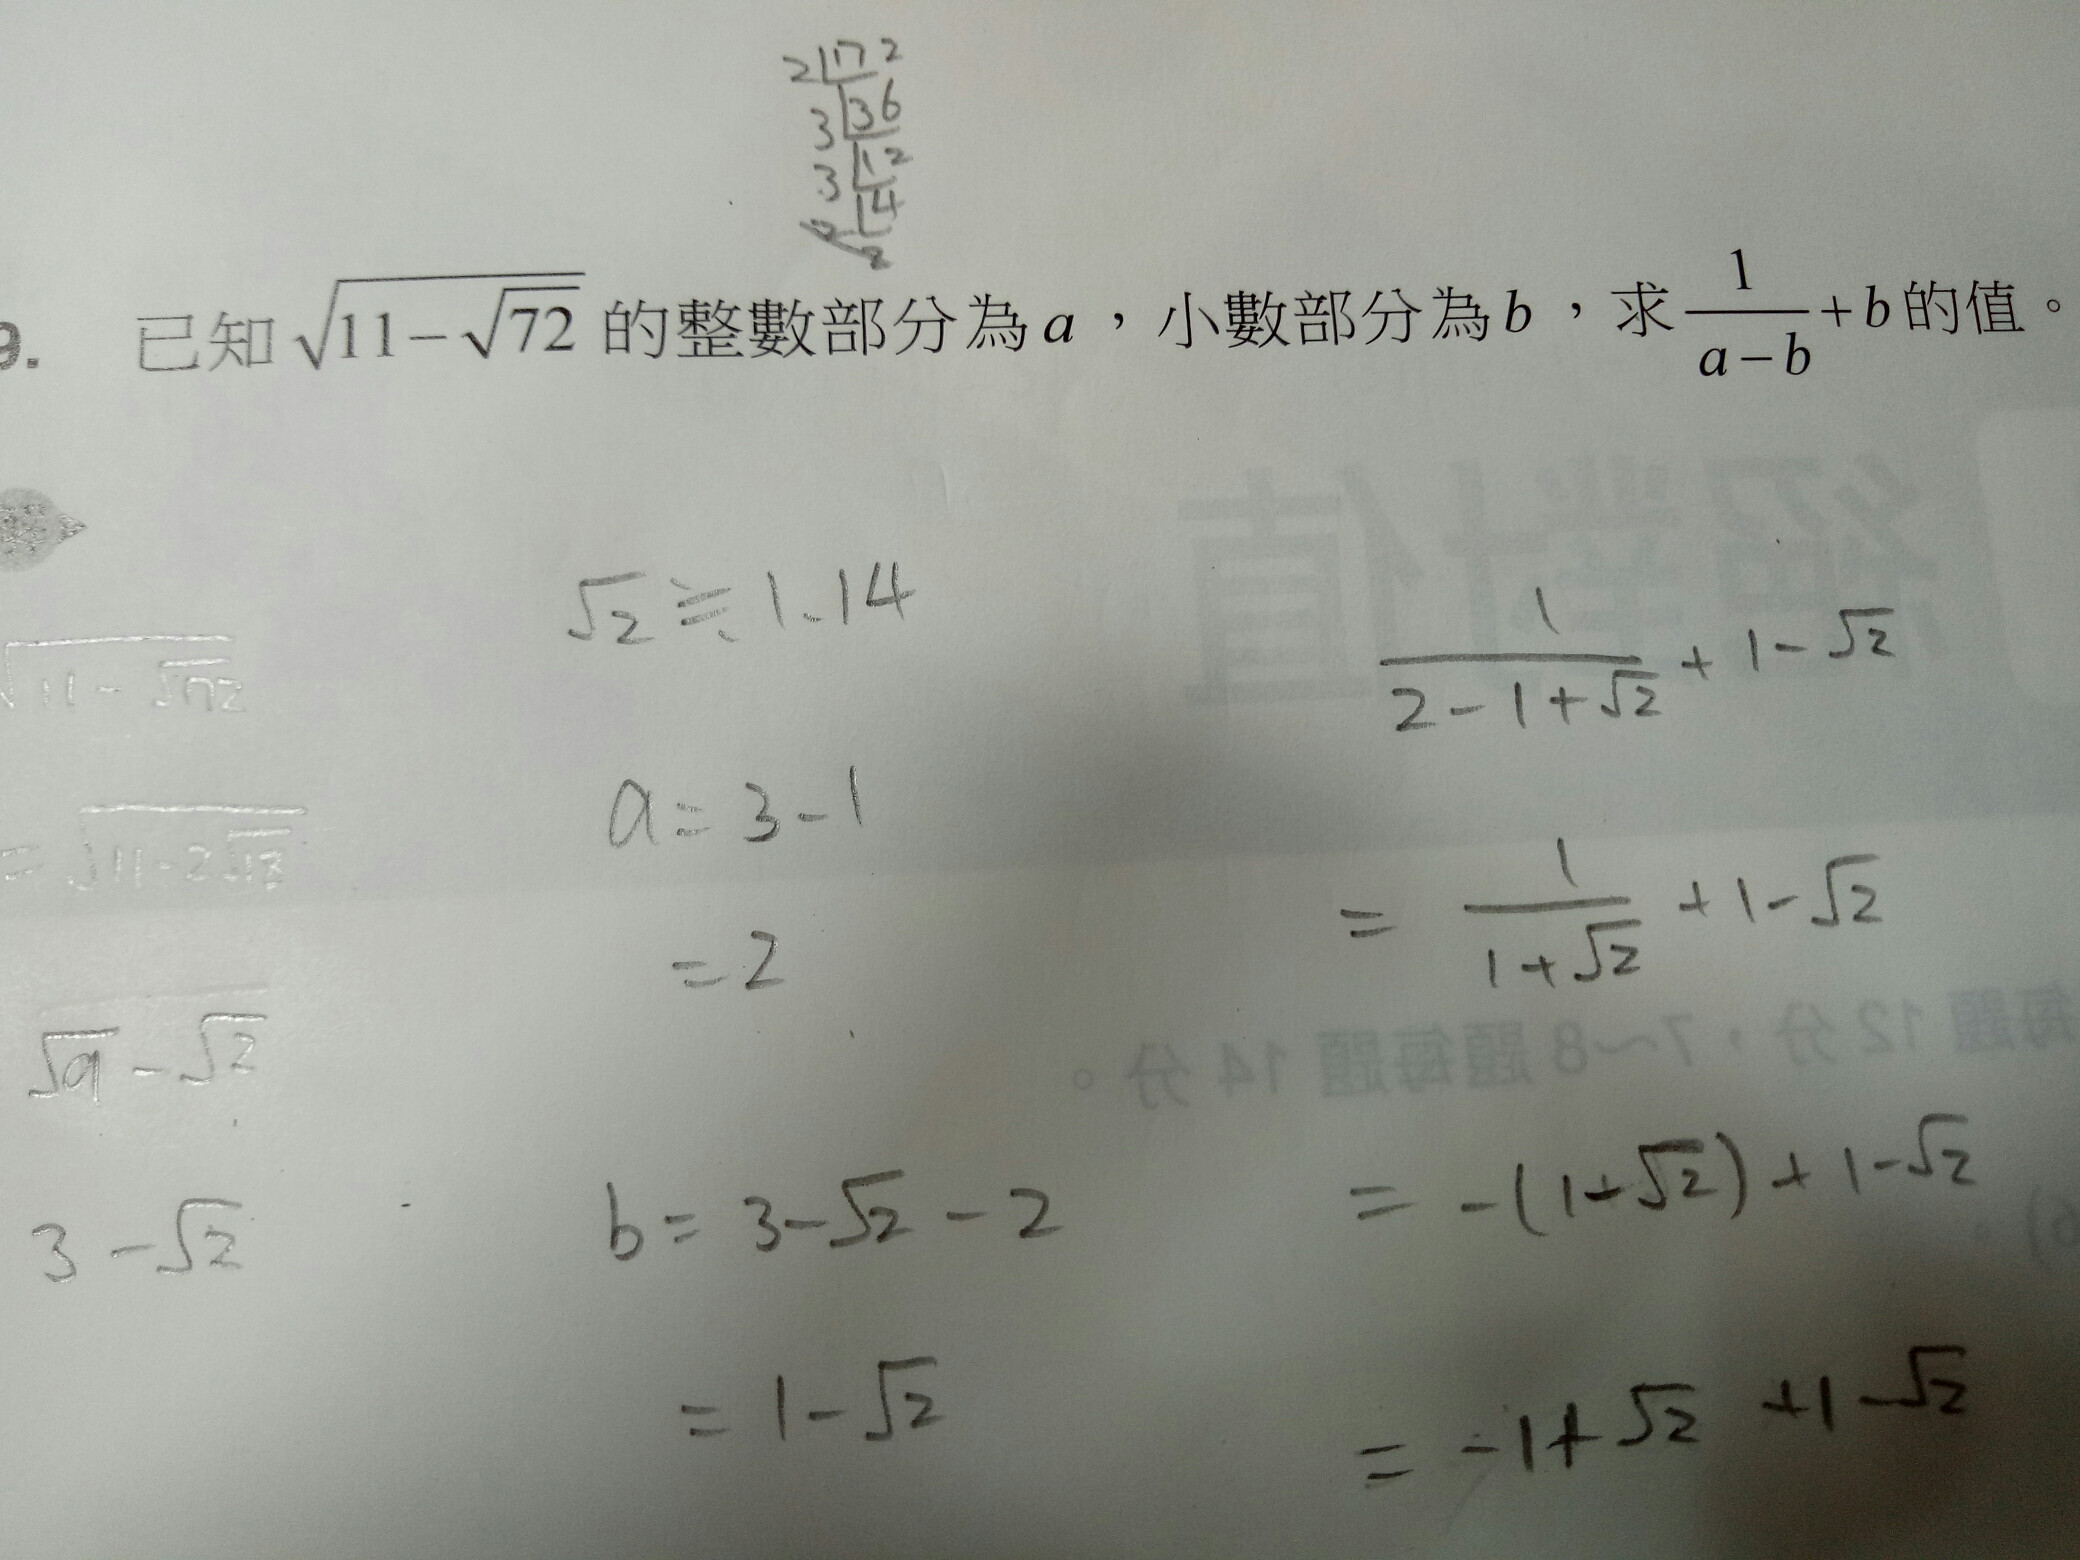 2|72
3|36
3|12
|4
2
9. 已知 √(11−√72) 的整數部分為 a，小數部分為 b，求 1/(a−b) + b 的值。
√(11-√72)
= √(11-2√18)
√9 - √2
3 - √2
√2 ≒ 1.14
a = 3-1
= 2
b = 3-√2 - 2
= 1-√2
1/(2-1+√2) + 1-√2
= 1/(1+√2) + 1-√2
= -(1-√2) + 1-√2
= -1+√2 +1-√2
絕對值
每題 12 分，7～8 題每題 14 分。